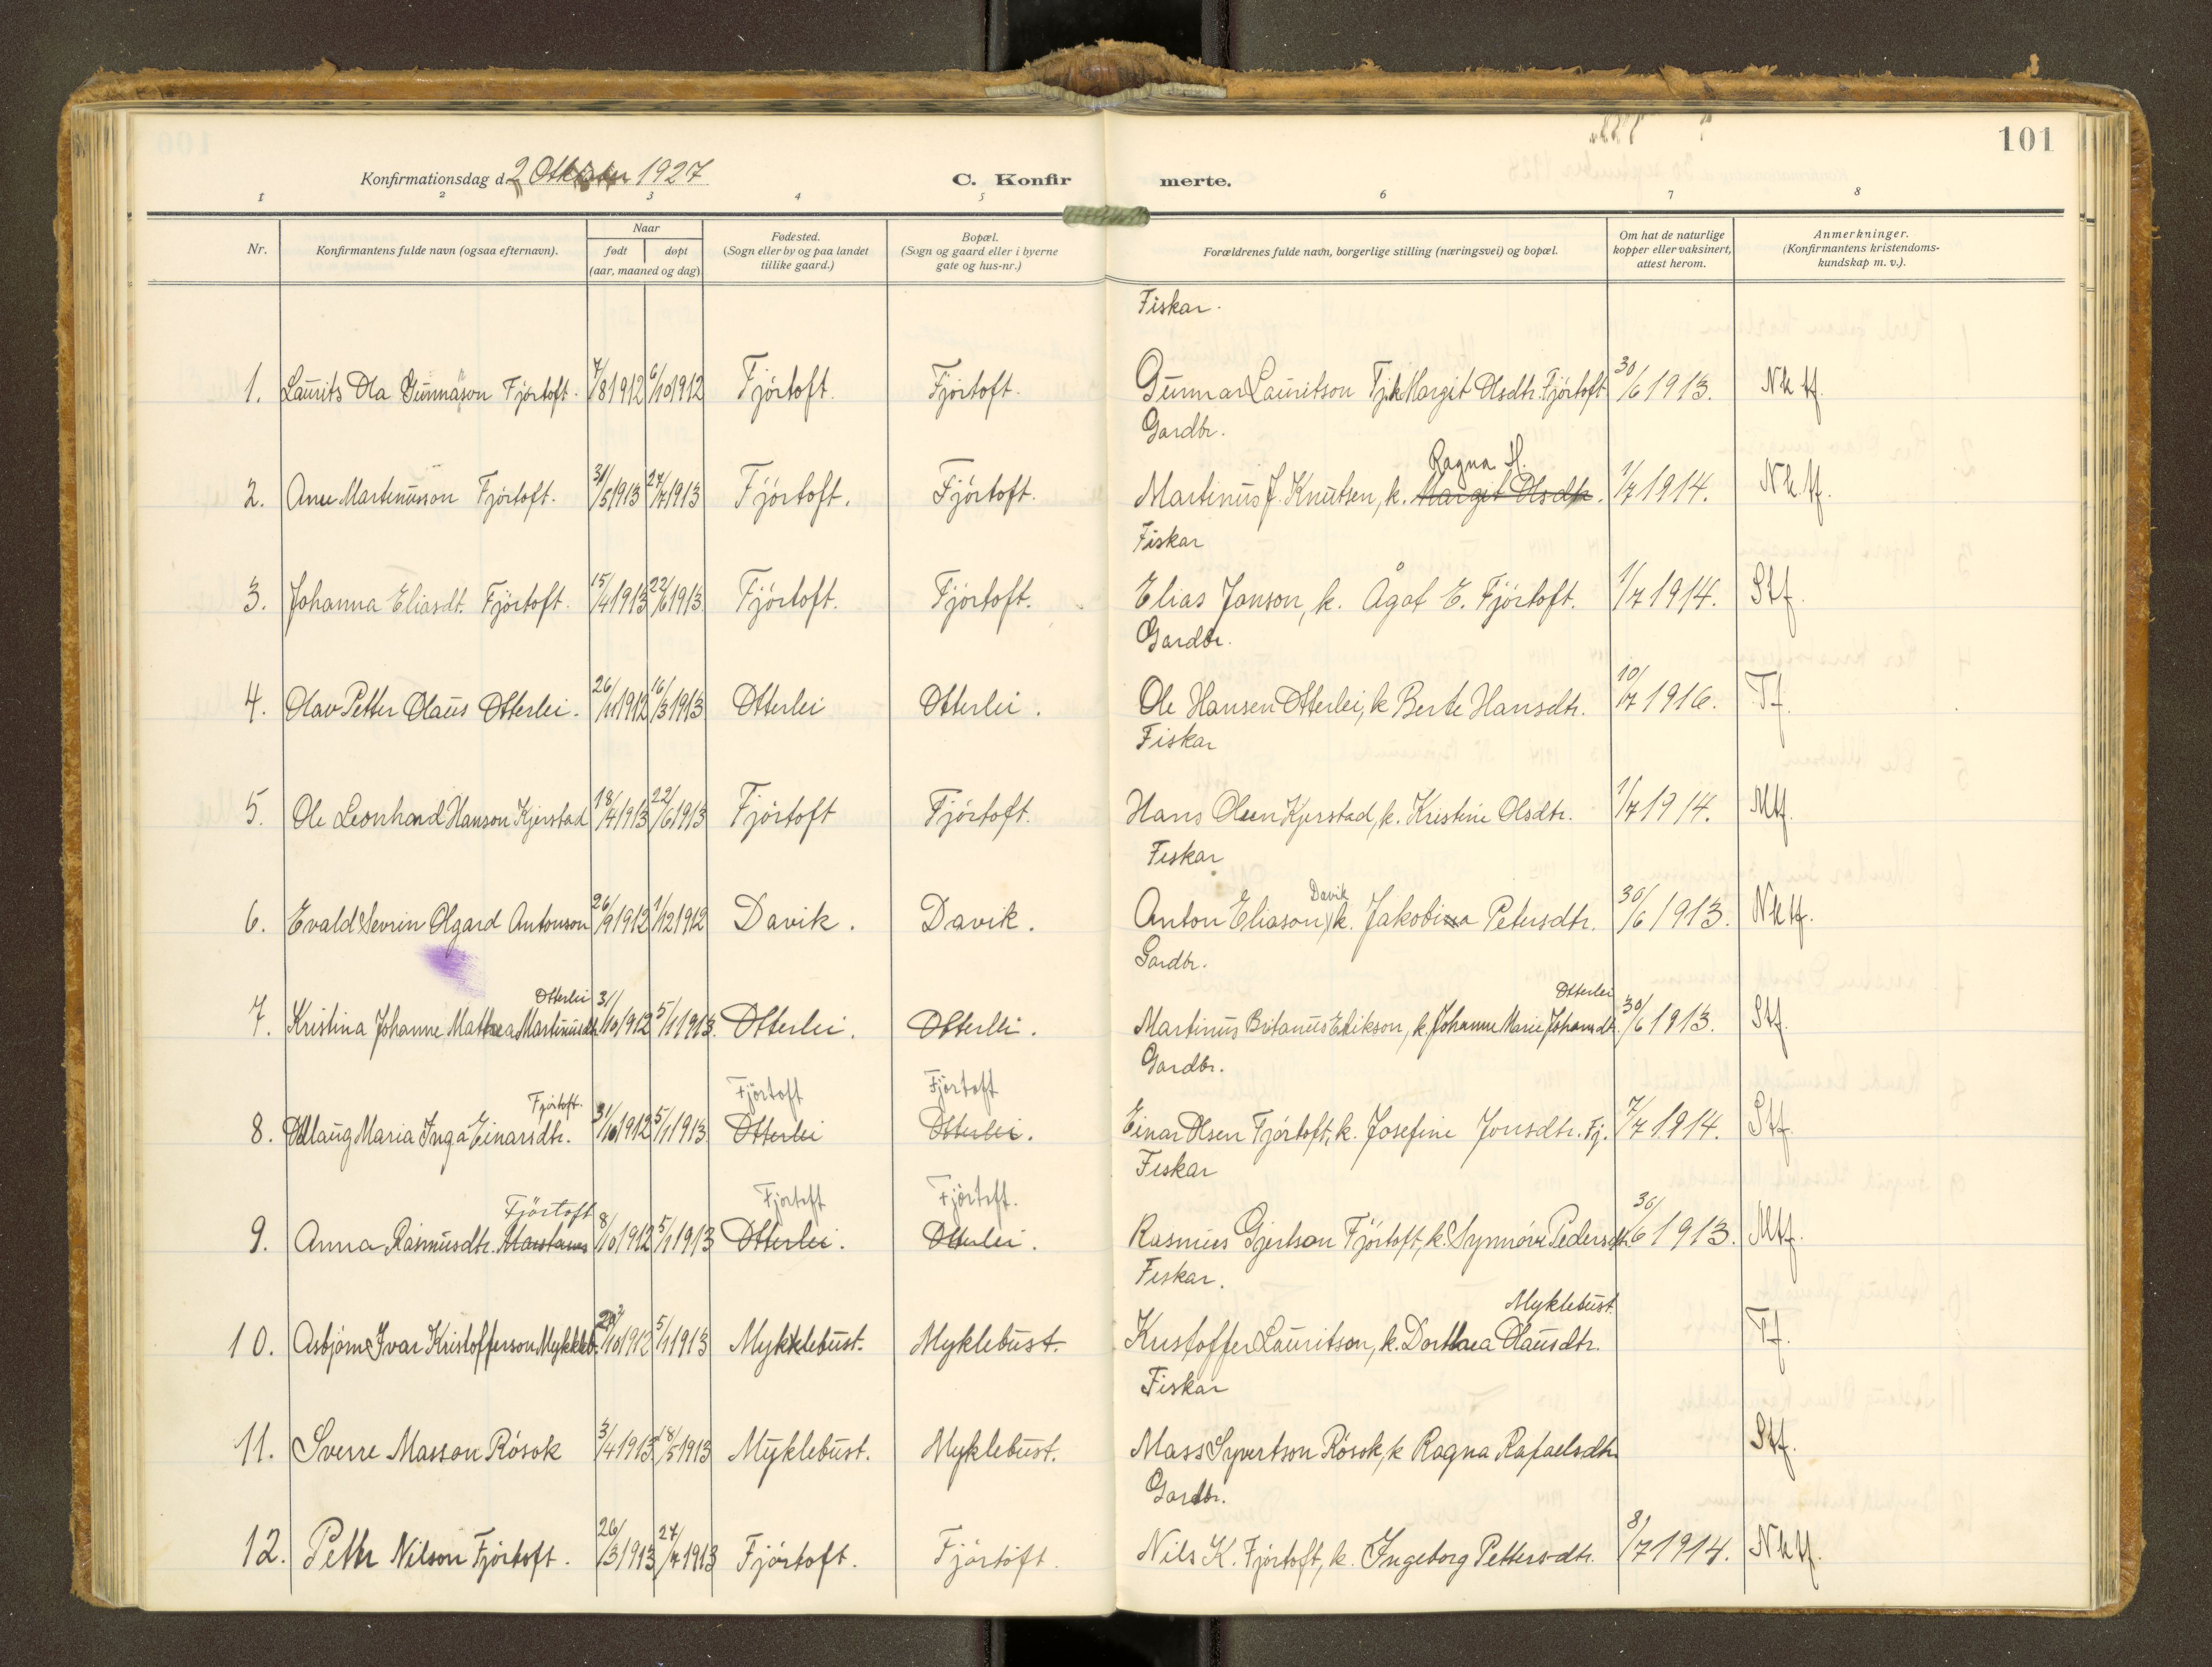 101
Konfirmationsdag d. 2 Oktober 1927
C. Konfirmerte.
1 2 3 4 5 6 7 8
Nr.
Konfirmantens fulde navn (ogsaa efternavn).
Naar
født døpt
(aar, maaned og dag)
Fødested.
(Sogn eller by og paa landet
tillike gaard.)
Bopæl.
(Sogn og gaard eller i byerne
gate og hus-nr.)
Forældrenes fulde navn, borgerlige stilling (næringsvei) og bopæl.
Om hat de naturlige
kopper eller vaksinert,
attest herom.
Anmerkninger.
(Konfirmantens kristendoms-
kundskap m. v.).
Fiskar.
1. Laurits Ola Gunnason Fjørtoft. 7/8 1912 6/10 1912 Fjørtoft. Fjørtoft. Gunnar Lauritson Fj. k Margit Olsdtr. Fjørtoft 30/6 1913. Nktf.
Gardbr.
Ragna H.
2. Ane Martinusson Fjørtoft. 31/5 1913 27/7 1913 Fjørtoft. Fjørtoft. Martinus J. Knutsen, k. Margit Olsdtr. 1/7 1914. Nk.tf.
Fiskar
3. Johanna Eliasdt. Fjørtoft. 15/4 1913 22/6 1913 Fjørtoft. Fjørtoft. Elias Janson, k. Ågot E. Fjørtoft. 1/7 1914. Stf.
Gardbr.
4. Olav Petter Olaus Otterlei. 26/11 1912 16/3 1913 Otterlei Otterlei. Ole Hansen Otterlei, k Berte Hansdtr. 10/7 1916. Tf.
Fiskar
5. Ole Leonhard Hanson Kjerstad 18/4 1913 22/6 1913 Fjørtoft Fjørtoft. Hans Olsen Kjerstad, k. Kristine Olsdtr. 1/7 1914. Mtf.
Fiskar
Davik
6. Evald Sevrin Olgard Antonson 26/9 1912 1/12 1912 Davik. Davik. Anton Eliason, k. Jakobina Petersdtr. 30/6 1913. Nktf.
Gardbr.
Otterlei Otterlei
7. Kristina Johanne Mathea Martinusdt. 31/10 1912 5/1 1913. Otterlei. Otterlei. Martinus Britanus Erikson, k. Johanne Marie Johansdtr. 30/6 1913. Stf.
Gardbr.
Fjørtoft. Fjørtoft Fjørtoft
8. Oddlaug Maria Inga Einarsdtr. 31/10 1912 5/1 1913 Otterlei Otterlei. Einar Olsen Fjørtoft, k. Josefine Jonsdtr. Fj. 7/7 1914. Stf.
Fiskar
Fjørtoft Fjørtoft Fjørtoft.
9. Anna Rasmusdtr. 8/10 1912 5/1 1913 Otterlei. Otterlei. Rasmus Gjertson Fjørtoft, k. Synnøve Pedersdt. 30/6 1913. Mtf.
Fiskar.
Myklebust.
10. Asbjørn Ivar Kristofferson Mykkleb. /10 1912 5/1 1913 Mykklebust. Myklebust. Kristoffer Lauritson, k. Dorthea Olausdtr. Tf.
Fiskar
11. Sverre Masson Røsok 3/4 1913. 18/5 1913 Myklebust. Myklebust. Mass Syvertson Røsok, k Ragna Rafaelsdtr. Stf.
Gardbr.
12. Petter Nilson Fjørtoft. 26/3 1913 27/7 1913 Fjørtoft. Fjørtoft. Nils K. Fjørtoft, k. Ingeborg Pettersdtr. 8/7 1914. Nktf.